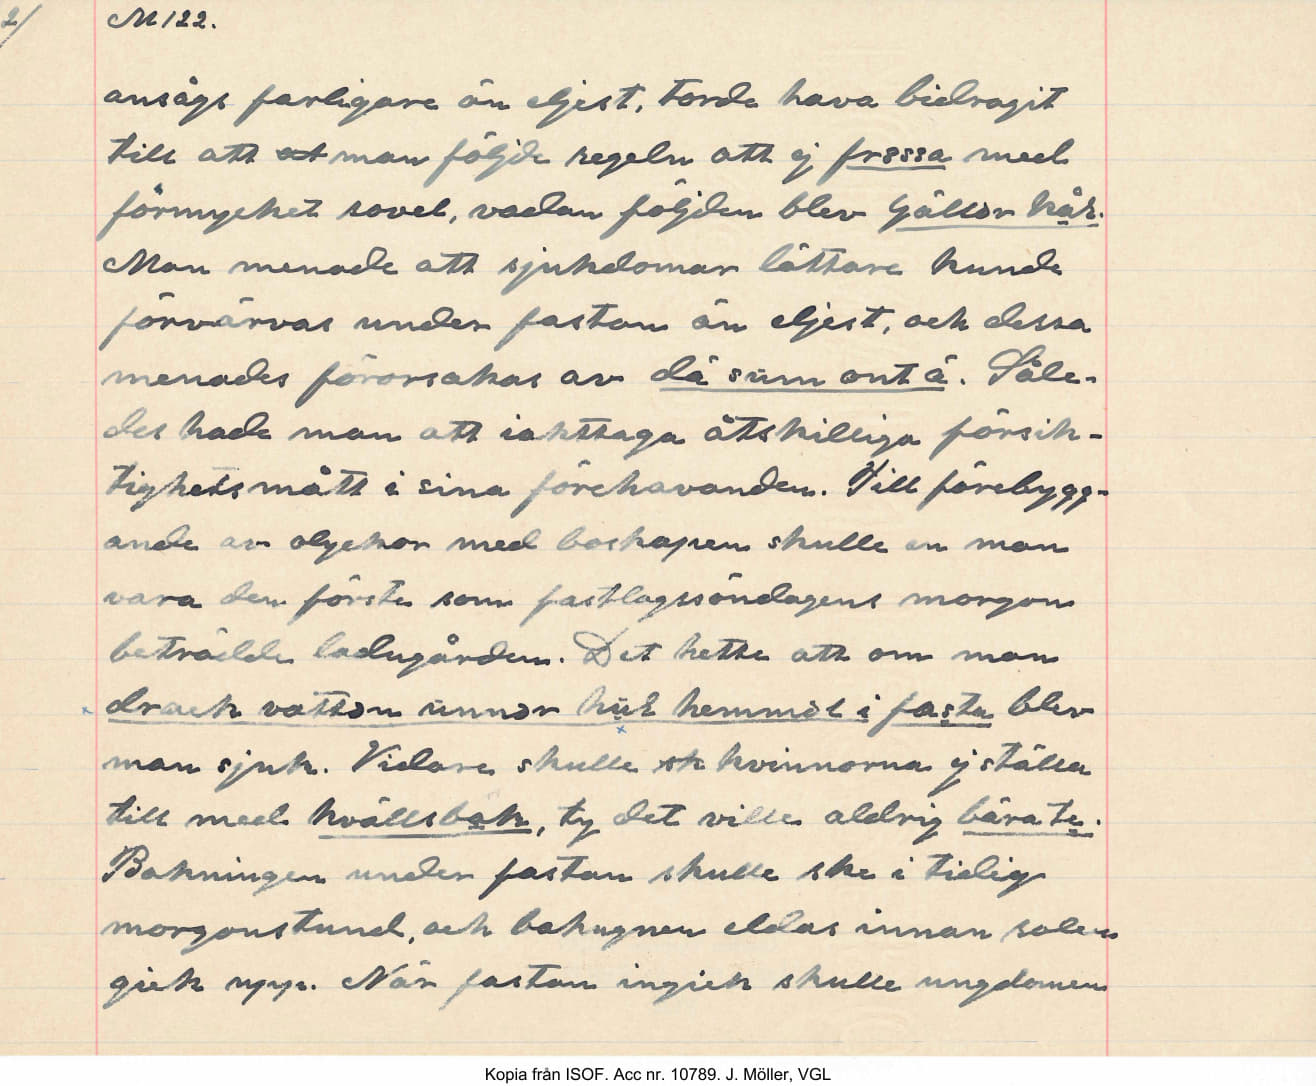 2/
M122.
ansågs farligare än eljest, torde hava bidragit
till att at man följde regeln att ej frssa med
förmycket sovel, vadan följden blev gällər hås.
Man menade att sjukdomar lättare kunde
förvärvas under fastan än eljest, och dessa
menades förorsakas av dä sum ont ä. Såle-
des hade man att iakttaga åtskilliga försik-
tighetsmått i sina förehavanden. Till förebygg-
ande av olyckor med boskapen skulle en man
vara den förste som fastlagssöndagens morgon
beträdde ladugården. Det hette att om man
drack vattən unnər hemməl i fasta blev
man sjuk. Vidare skulle sk kvinnorna ej ställa
till med kvällsbak, ty det ville aldrig bära te.
Bakningen under fastan skulle ske i tidig
morgonstund, och bakugnen eldas innan solen
gick upp. När fastan ingick skulle ungdomen
Kopia från ISOF. Acc nr. 10789. J. Möller, VGL